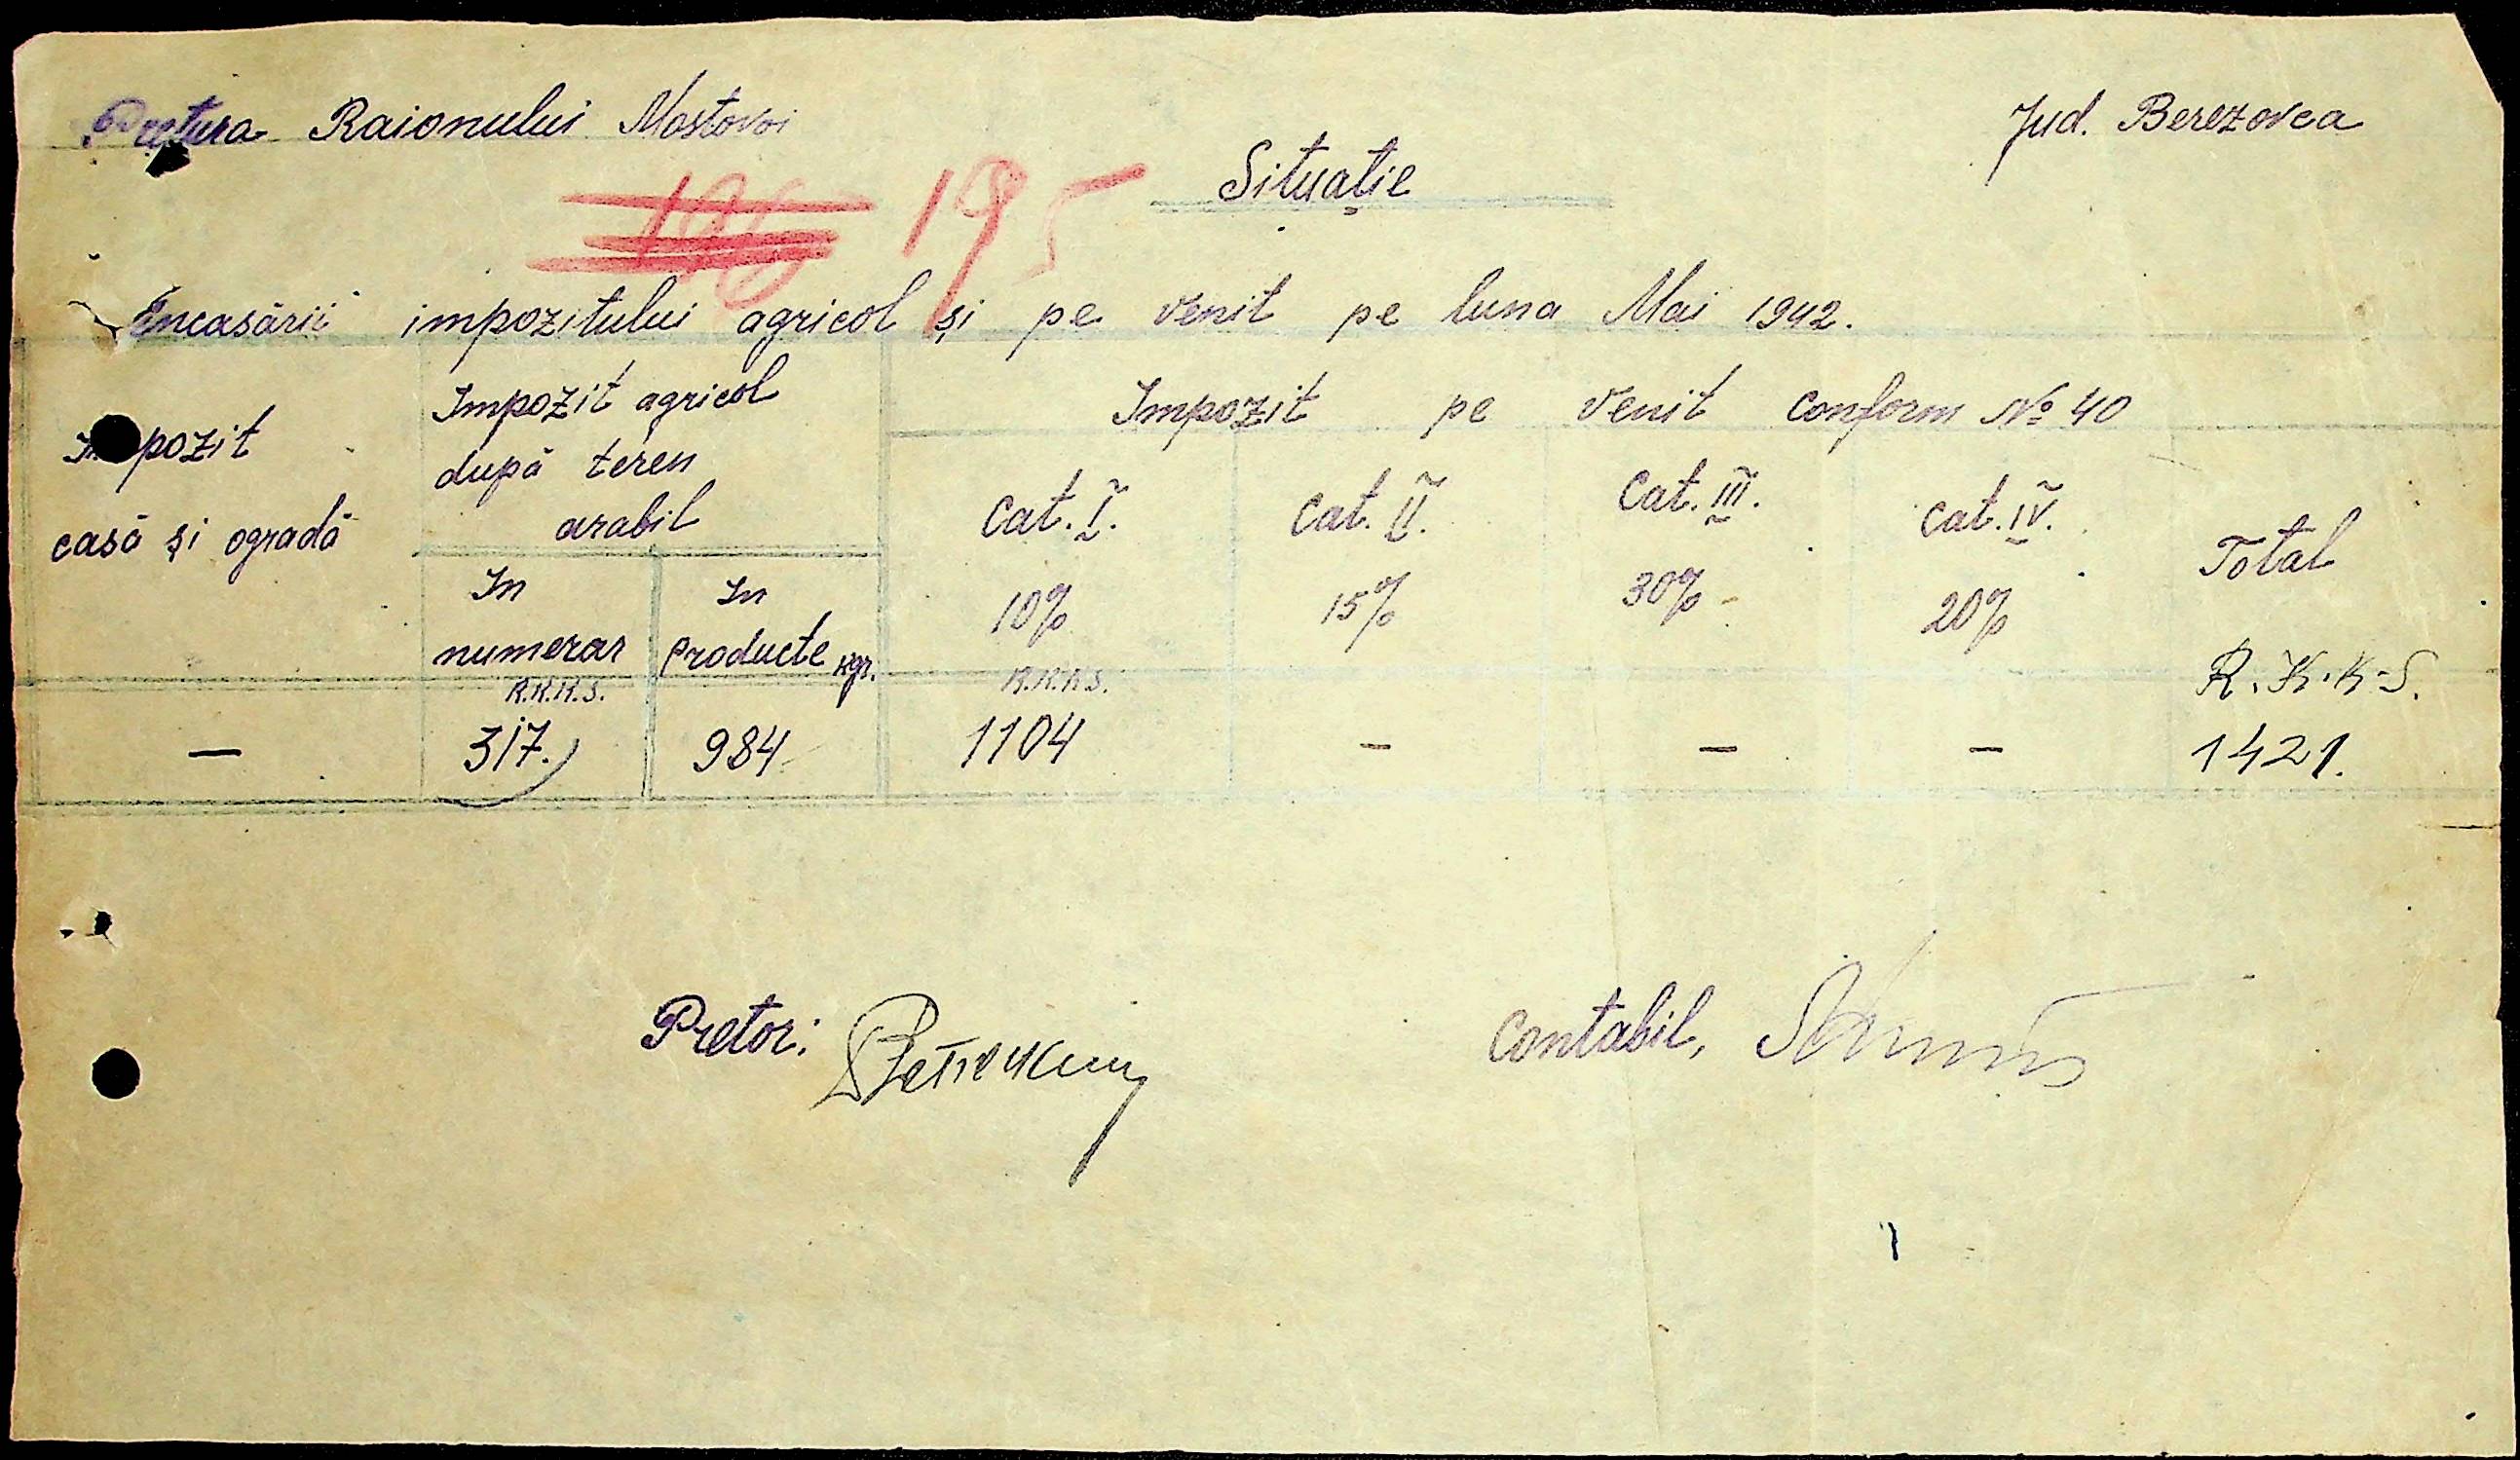 Pretura Raionului Mostovoi
Jud. Berezovca
195
Situaţie
Încasării impozitului agricol şi pe venit pe luna Mai 1942.
Impozit agricol
după teren
arabil
Impozit pe venit conform № 40
Impozit
casă şi ogradă
Cat. I.
Cat. II.
Cat. III.
Cat. IV.
Total
In
numerar
In
producte kgr.
10%
15%
30%
20%
R.K.K.S.
R.K.K.S.
R.K.K.S.
— 317. 984 1104 — — — 1421.
Pretor:
Contabil,